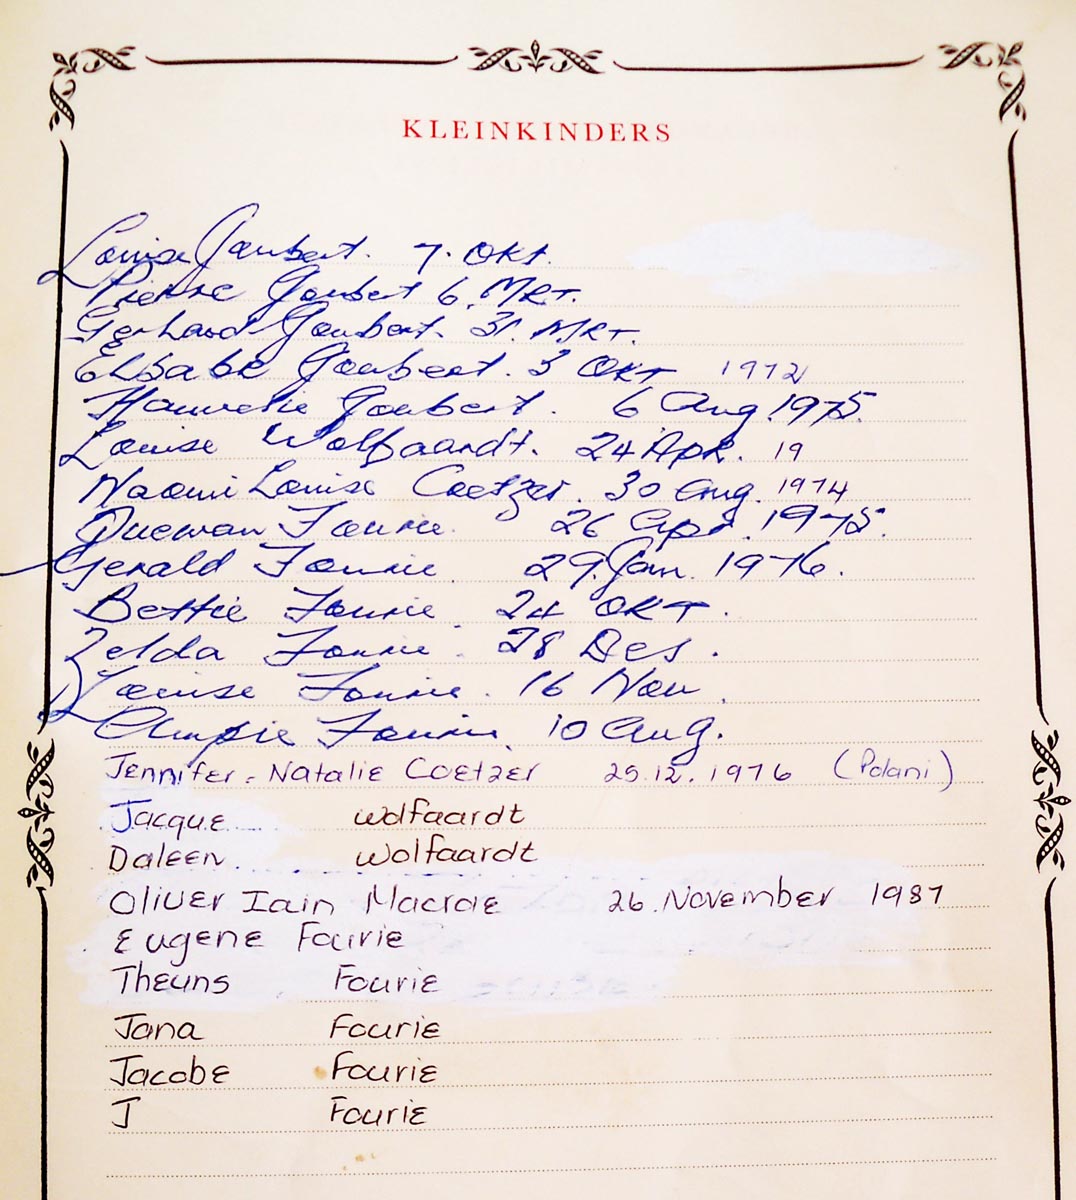 KLEINKINDERS
Louise Joubert. 7. OKt.
Pierre Joubert 6 MRT.
Gerhard Joubert. 31. MRT.
Elsabe Joubert. 3 OKT 1972
Joubert. 6 Aug. 1975.
Louise Wolfaardt. 24 Apr. 19
Naomi Louise Coetzer. 30 Aug. 1974
Quewan Fourie. 26 Apr. 1975.
Gerald Fourie. 29. Jan. 1976.
Bettie Fourie. 24 OKT.
Zelda Fourie. 28 Des.
Louise Fourie. 16 Nov.
Fourie. 10 Aug.
Jennifer-Natalie Coetzer 25.12.1976 (Polani)
Jacque Wolfaardt
Daleen Wolfaardt
Oliver Iain Macrae 26. November 1987
Eugene Fourie
Theuns Fourie
Jana Fourie
Jacobe Fourie
J Fourie